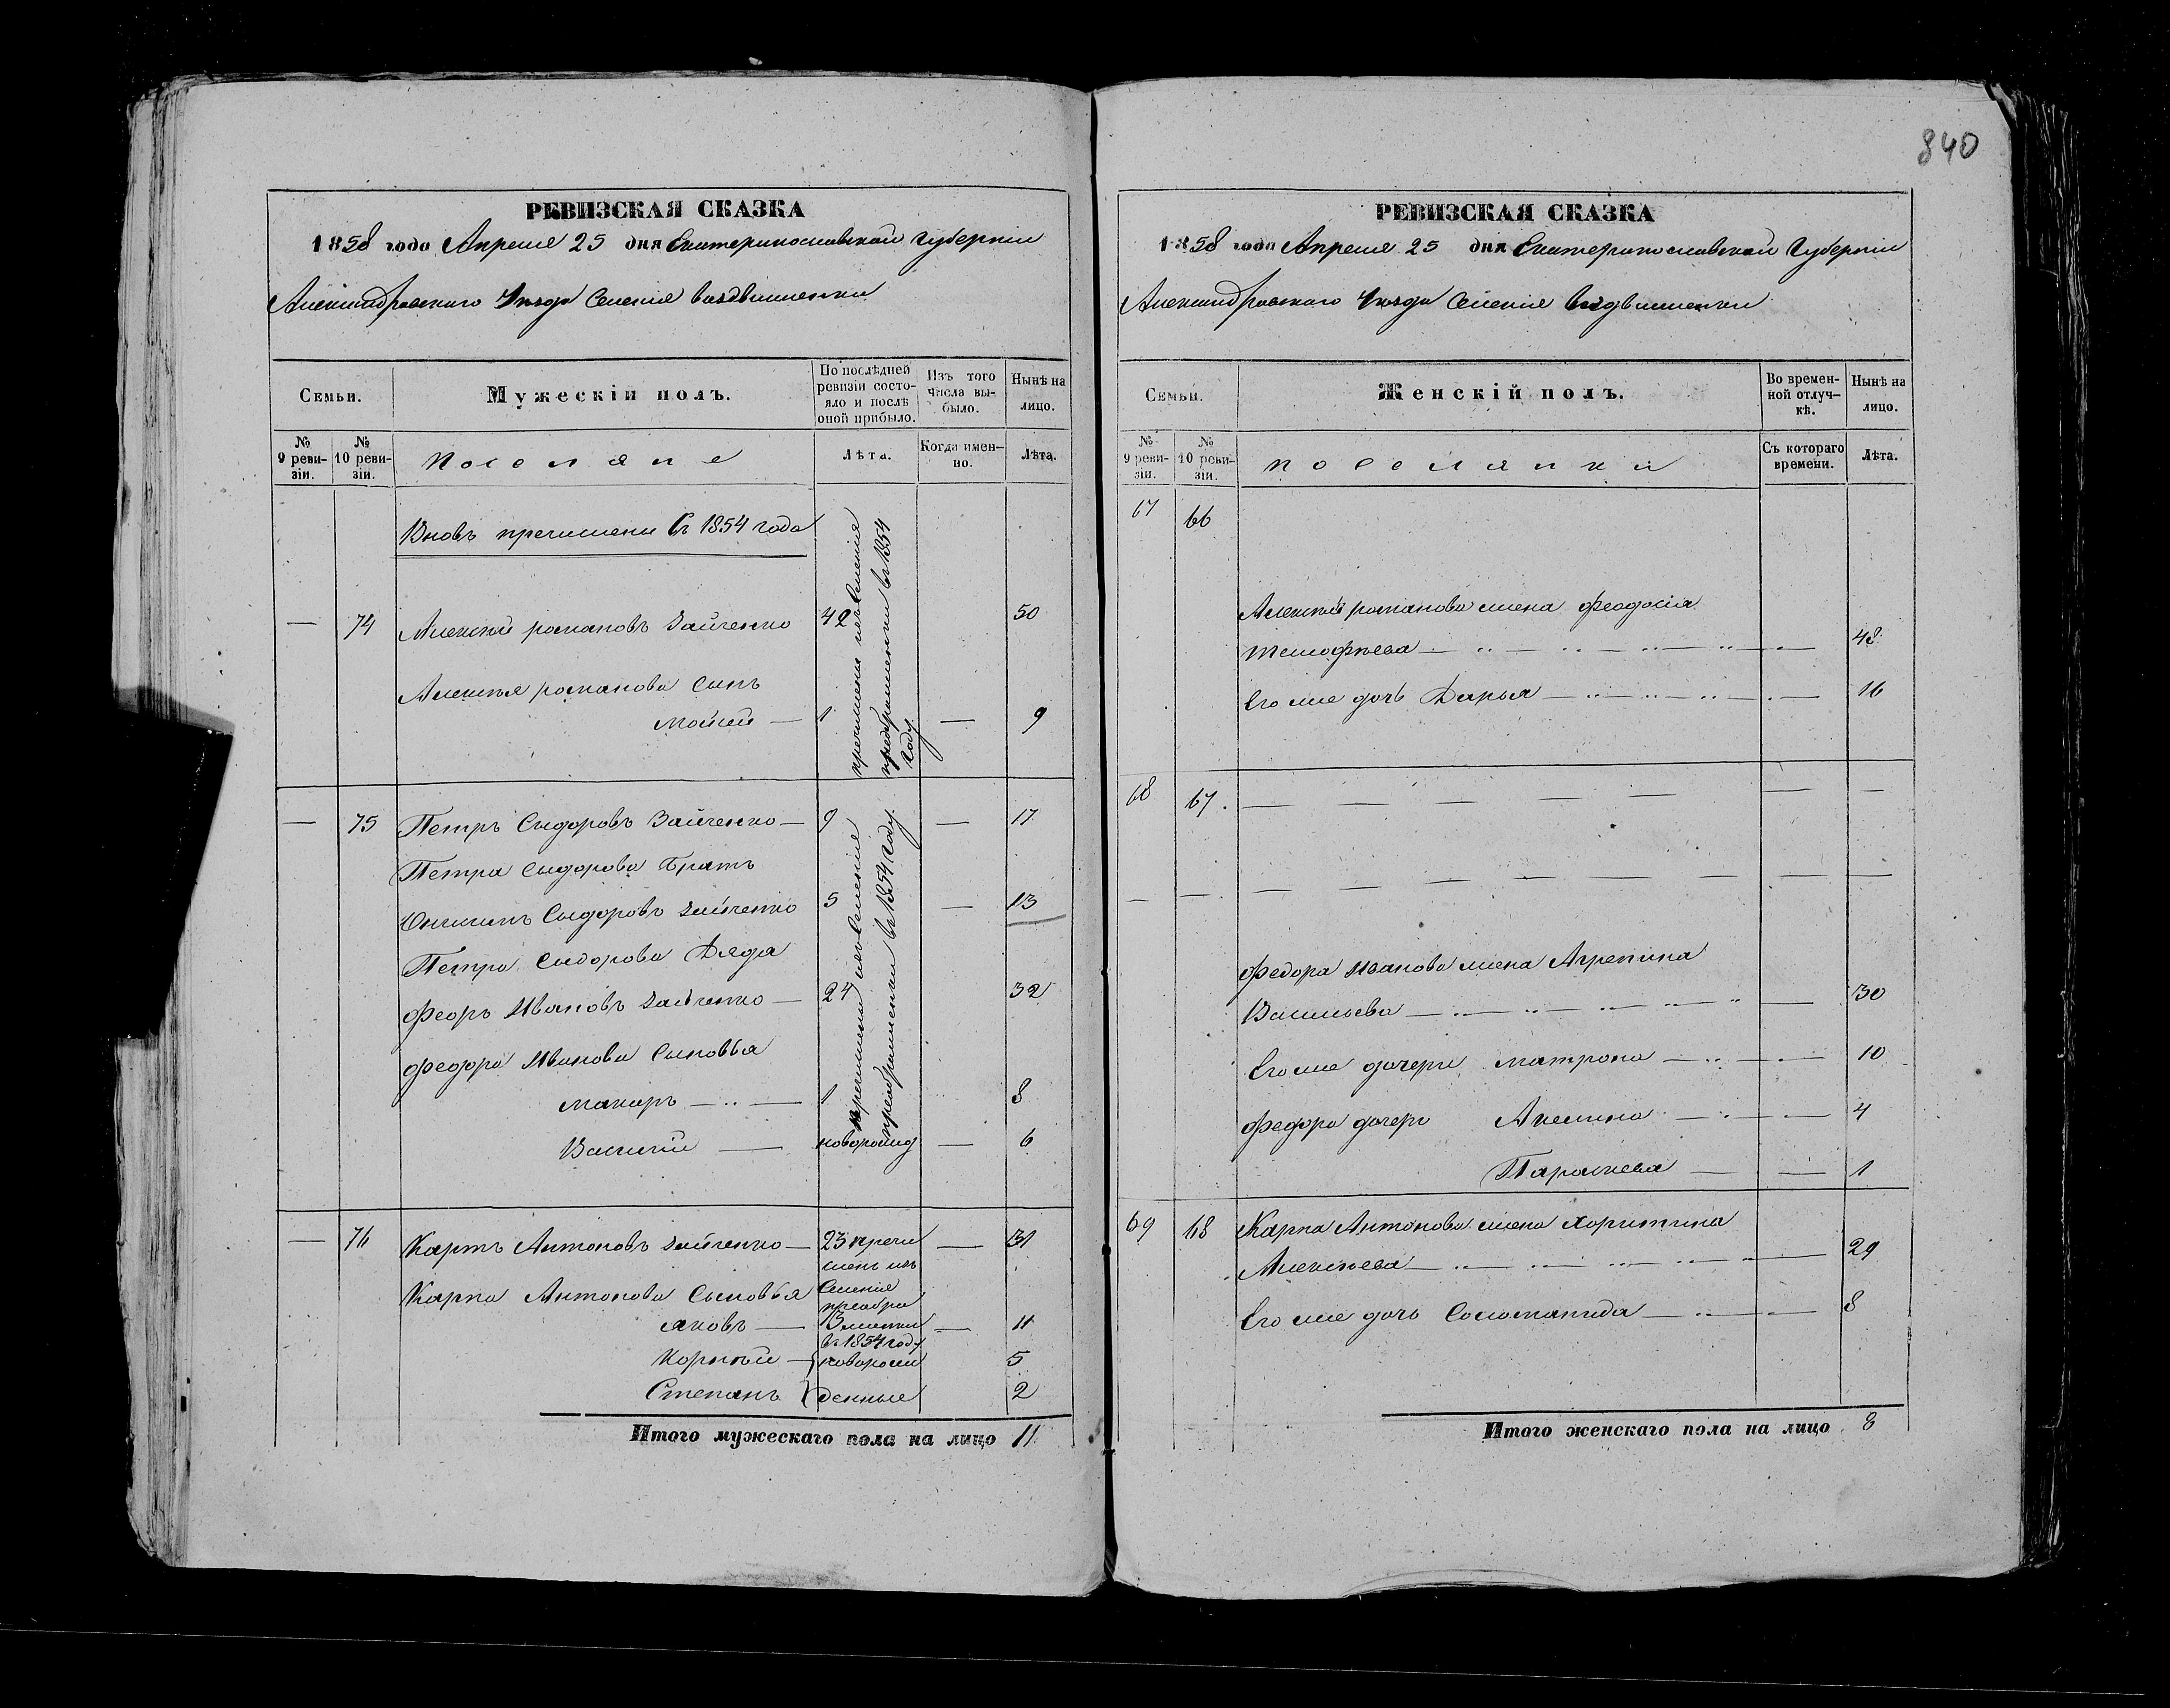 840
РЕВИЗСКАЯ СКАЗКА
1858 года Апреля 25 дня Екатеринославской Губернии
Александровского Уезда Селения Воздвиженки
Семьи.
Мужескій полъ.
По послѣдней ревизіи состо-
яло и послѣ
оной прибыло.
Изъ того
числа вы-
было.
Нынѣ на
лицо.
№
9 реви-
зіи.
№
10 реви-
зіи.
Поселяне
Лѣта.
Когда имен-
но.
Лѣта.
Вновь пречислены Съ 1854 года
— 74 Алексий романовъ Зайченко 42 50
Алексея романова Сынъ
Мойсей — 1 — 9
пречислены изъ Селения
преображенки въ 1854
году
— 75 Петръ Сыдоровъ Зайченко — 9 — 17
Петра Сыдорова Братъ
Онисимъ Сыдоровъ Зайченко 5 — 13
Петра Сыдорова Дядя
Феоръ Ивановъ Зайченко — 24 32
Федора Иванова Сыновья
Макаръ — 1 8
Василий — новорожд — 6
пречислены изъ Селения
преображенки въ 1854 году
— 76 Карпъ Антоновъ Зайченко — 23 пречи — 31
сленъ изъ
Карпа Антонова Сыновья Селения
преобра
Яковъ — 3 женки — 11
въ 1854 году
Корней — новорож 5
Степанъ денные 2
Итого мужескаго пола на лицо 11
РЕВИЗСКАЯ СКАЗКА
1858 года Апреля 25 дня Екатеринославской Губернии
Александровского Уезда Селения Воздвиженки
Семьи.
Женскій полъ.
Во времен-
ной отлуч-
кѣ.
Нынѣ на
лицо.
№
9 реви-
зіи.
№
10 реви-
зіи.
поселянки
Съ котораго
времени.
Лѣта.
67 66
Алексея романова жена Феодосия
Тимофеева — 48
Его же дочь Дарья — 16
68 67. — — — — — — —
— — — — — — — — —
Федора Иванова жена Агрепина
Васильева — 30
Его же дочери Матрона — 10
Федора дочери Акелина — 4
Параскева — 1
69 68 Карпа Антонова жена Харитина
Алексеева — 29
Его же дочь Соломанида — 8
Итого женскаго пола на лицо 8